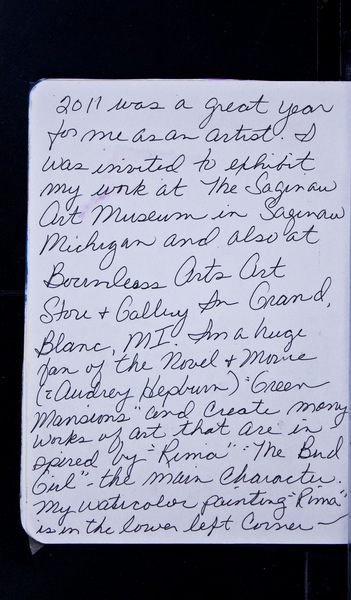 2011 was a great year
for me as an artist. I
was invited to exhibit
my work at The Saginaw
Art Museum in Saginaw
Michigan and also at
Bournless Arts Art
Store + Gallery In Grand,
Blanc, MI. Im a huge
fan of the Novel + Movie
(Audrey Hepburn) "Green
Mansions" and create many
works of art that are in
spired by "Rima" "The Bird
Girl" - the main character.
My watercolor painting "Rima"
is in the lower left corner —